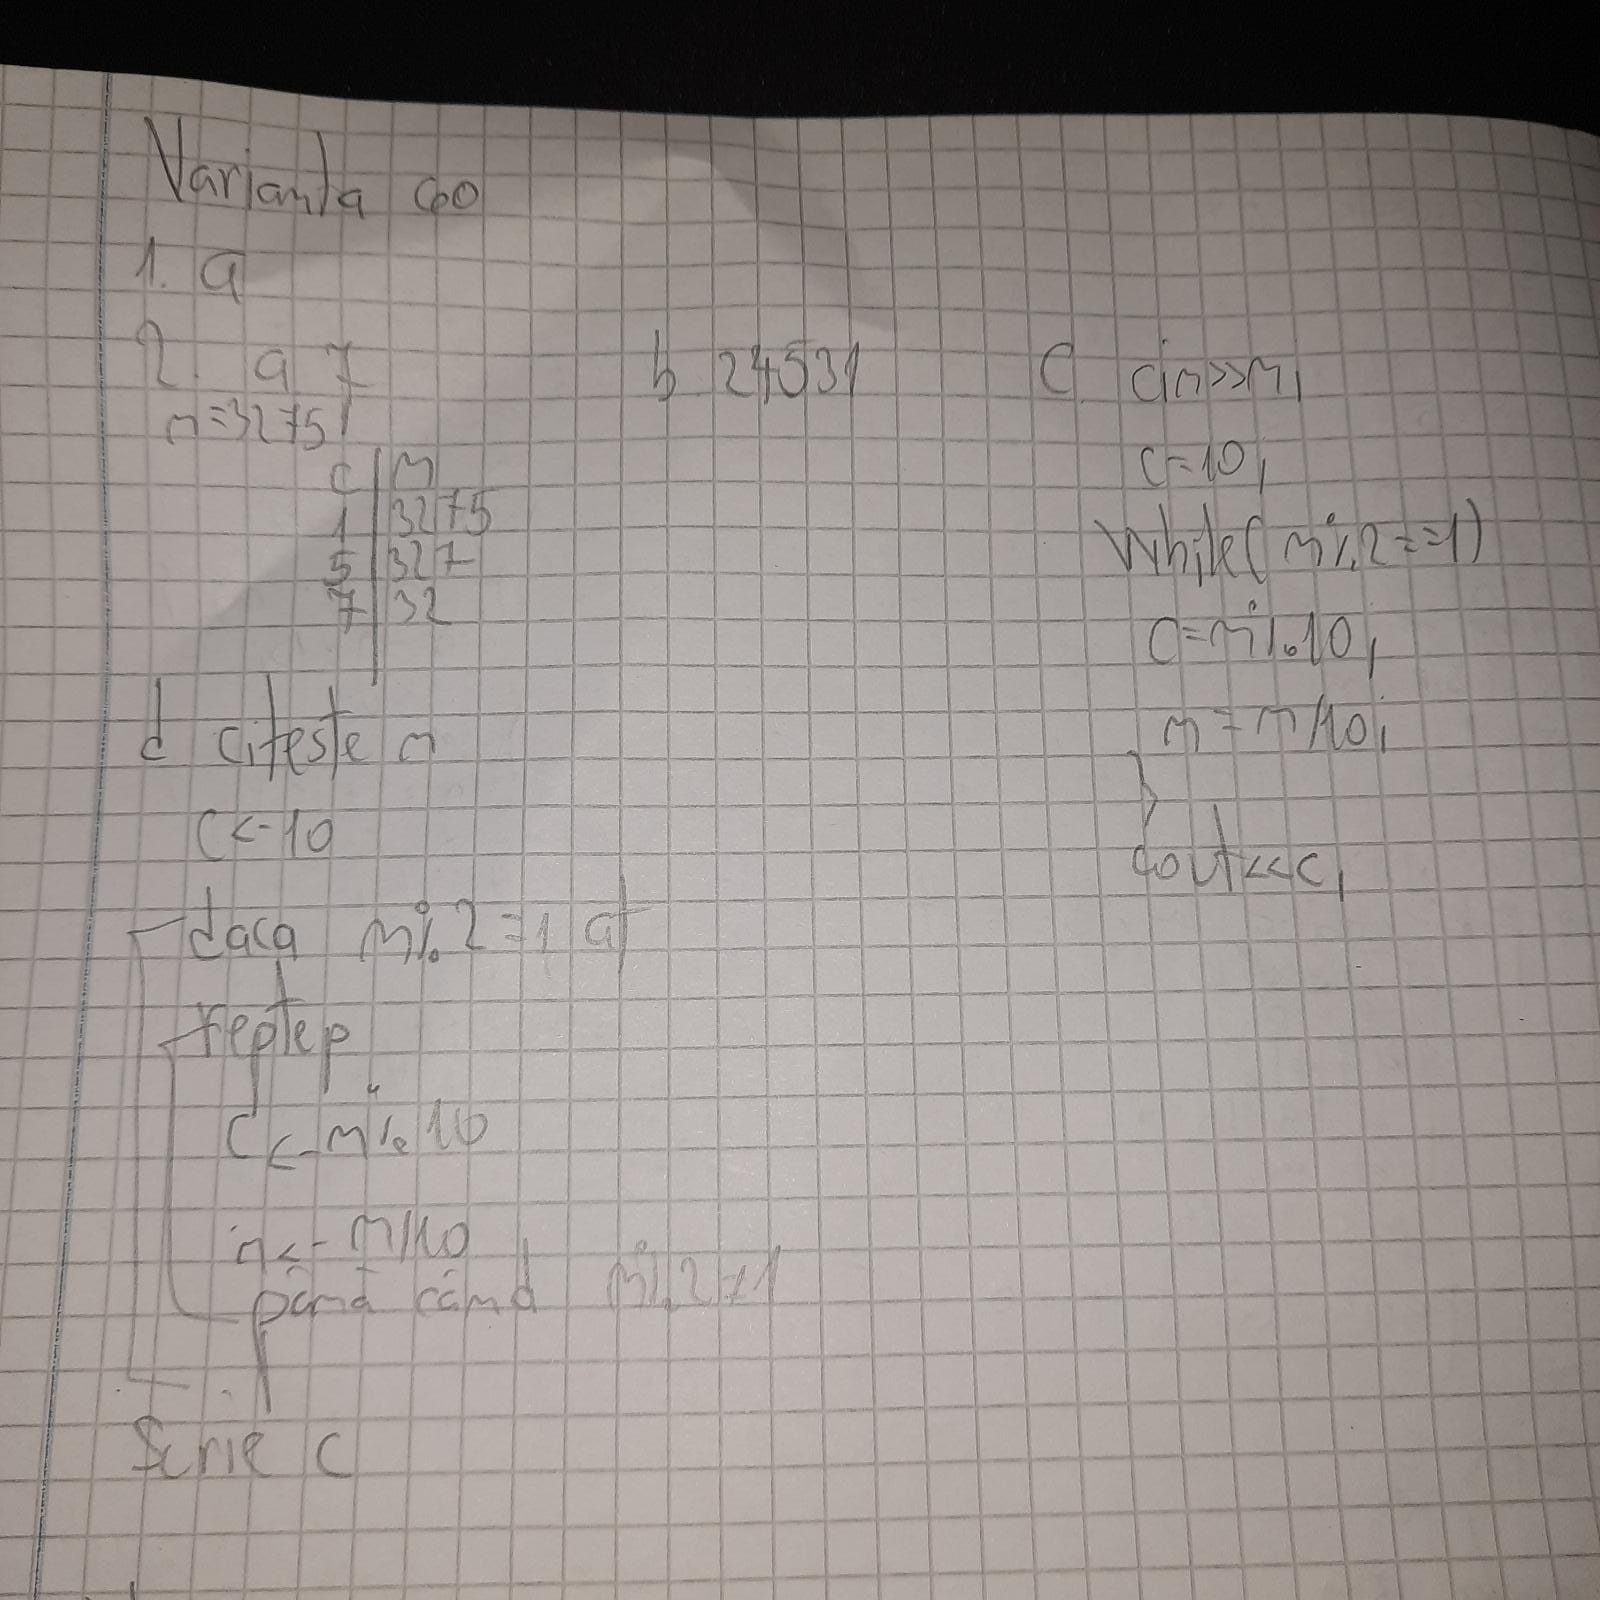 Varianta 60
1. a
2. a 7
n=3275
c | n
1 | 3275
5 | 327
7 | 32
b 24531
C cin>>n;
c=10;
While(n%2==1)
C=n%10;
n=n/10;
}
cout<<c;
d citeste n
C<-10
daca n%2=1 at
C<-n%10
n<-n/10
până când n%2≠1
Scrie c